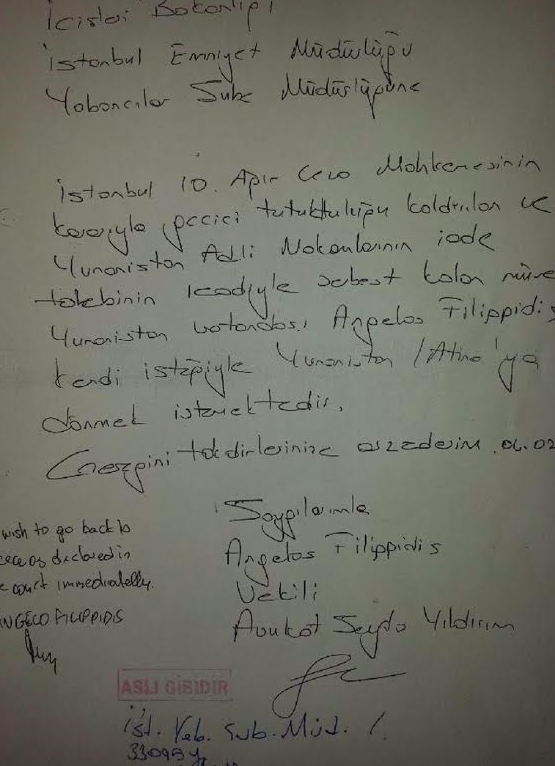 İçişleri Bakanlığı
İstanbul Emniyet Müdürlüğü
Yabancılar Şube Müdürlüğüne
İstanbul 10. Ağır Ceza Mahkemesinin
kararıyla geçici tutukluluğu kaldırılan ve
Yunanistan Adli Makamlarının iade
talebinin reddiyle serbest kalan müve
Yunanistan vatandaşı Angelos Filippidis
kendi isteğiyle Yunanistan / Atina'ya
dönmek istemektedir.
Gereğini takdirlerinize arzederim. 04.02
Saygılarımla
Angelos Filippidis
Vekili
Avukat Seyda Yıldırım
wish to go back to
declared in
court immediatelly.
FILIPPIDIS
ASLI GİBİDİR
İst. Yab. Şub. Müd.